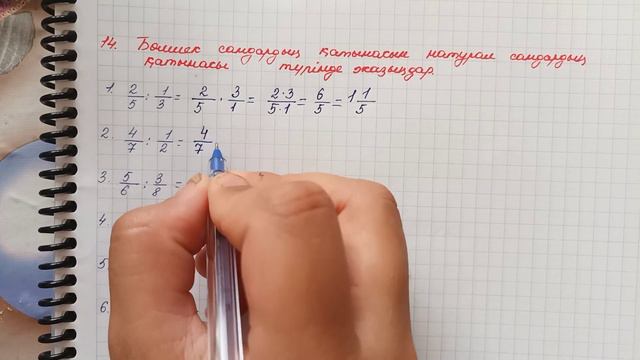 14. Бөлшек сандардың қатынасын натурал сандардың
қатынасы түрінде жазыңдар.
1. 2/5 : 1/3 = 2/5 · 3/1 = 2·3/5·1 = 6/5 = 1 1/5
2. 4/7 : 1/2 = 4/7
3. 5/6 : 3/8 =
4.
5
6.